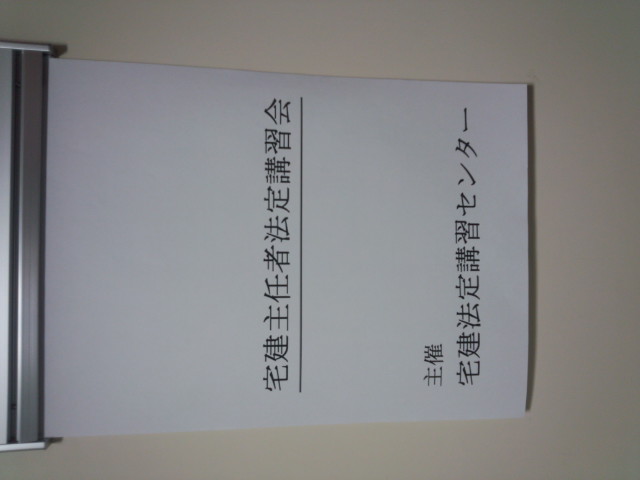 宅建主任者法定講習会
主催
宅建法定講習センター